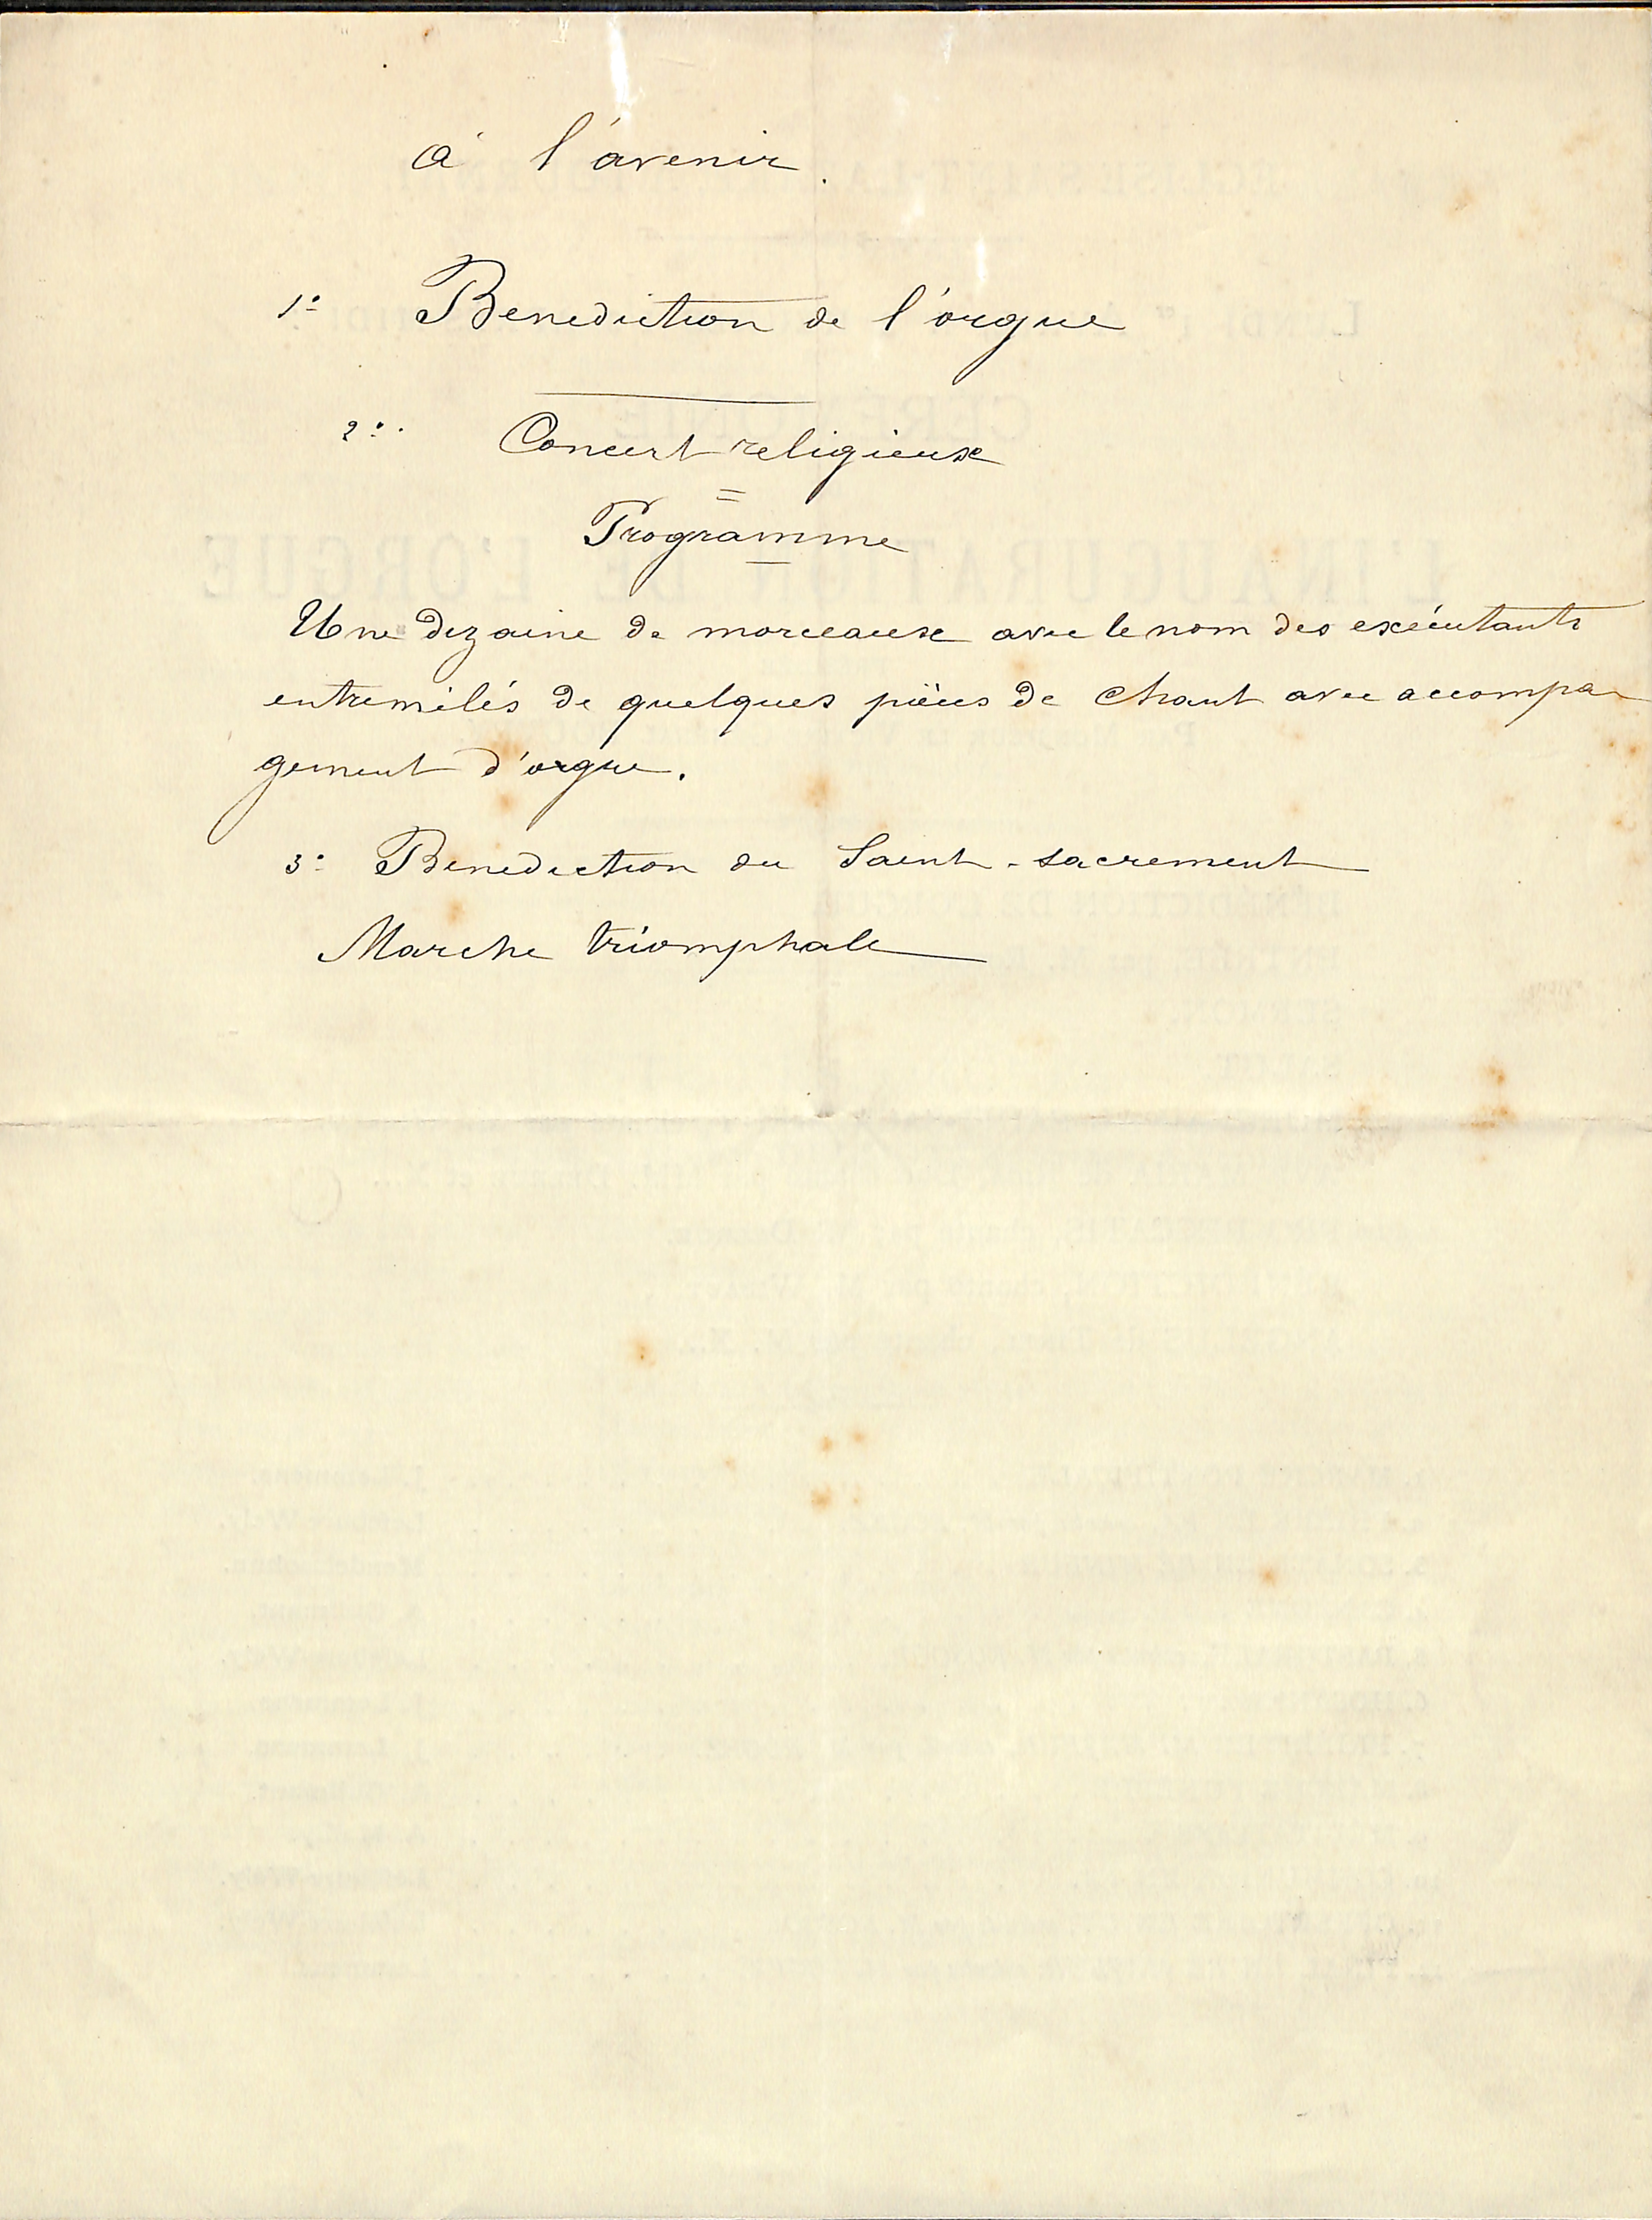 à l'avenir.
1° Benediction de l'orgue
2° Concert religieux
=
Programme
Une dizaine de morceaux avec le nom des exécutants
entremêlés de quelques pièces de chant avec accompa
gement d'orgue.
3° Benediction du Saint-sacrement
Marche triomphale